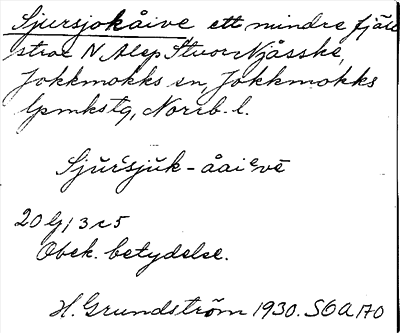 Sjursjokåive ett mindre fjäll
strax N Alep Stuor Njåsske,
Jokkmokks sn, Jokkmokks
lpmkstg, Norrb. l.
Sjŭrᵉsjŭk-åaiᵉvē
20 G 3 c 5
Obek. betydelse.
H. Grundström 1930. S6A 170